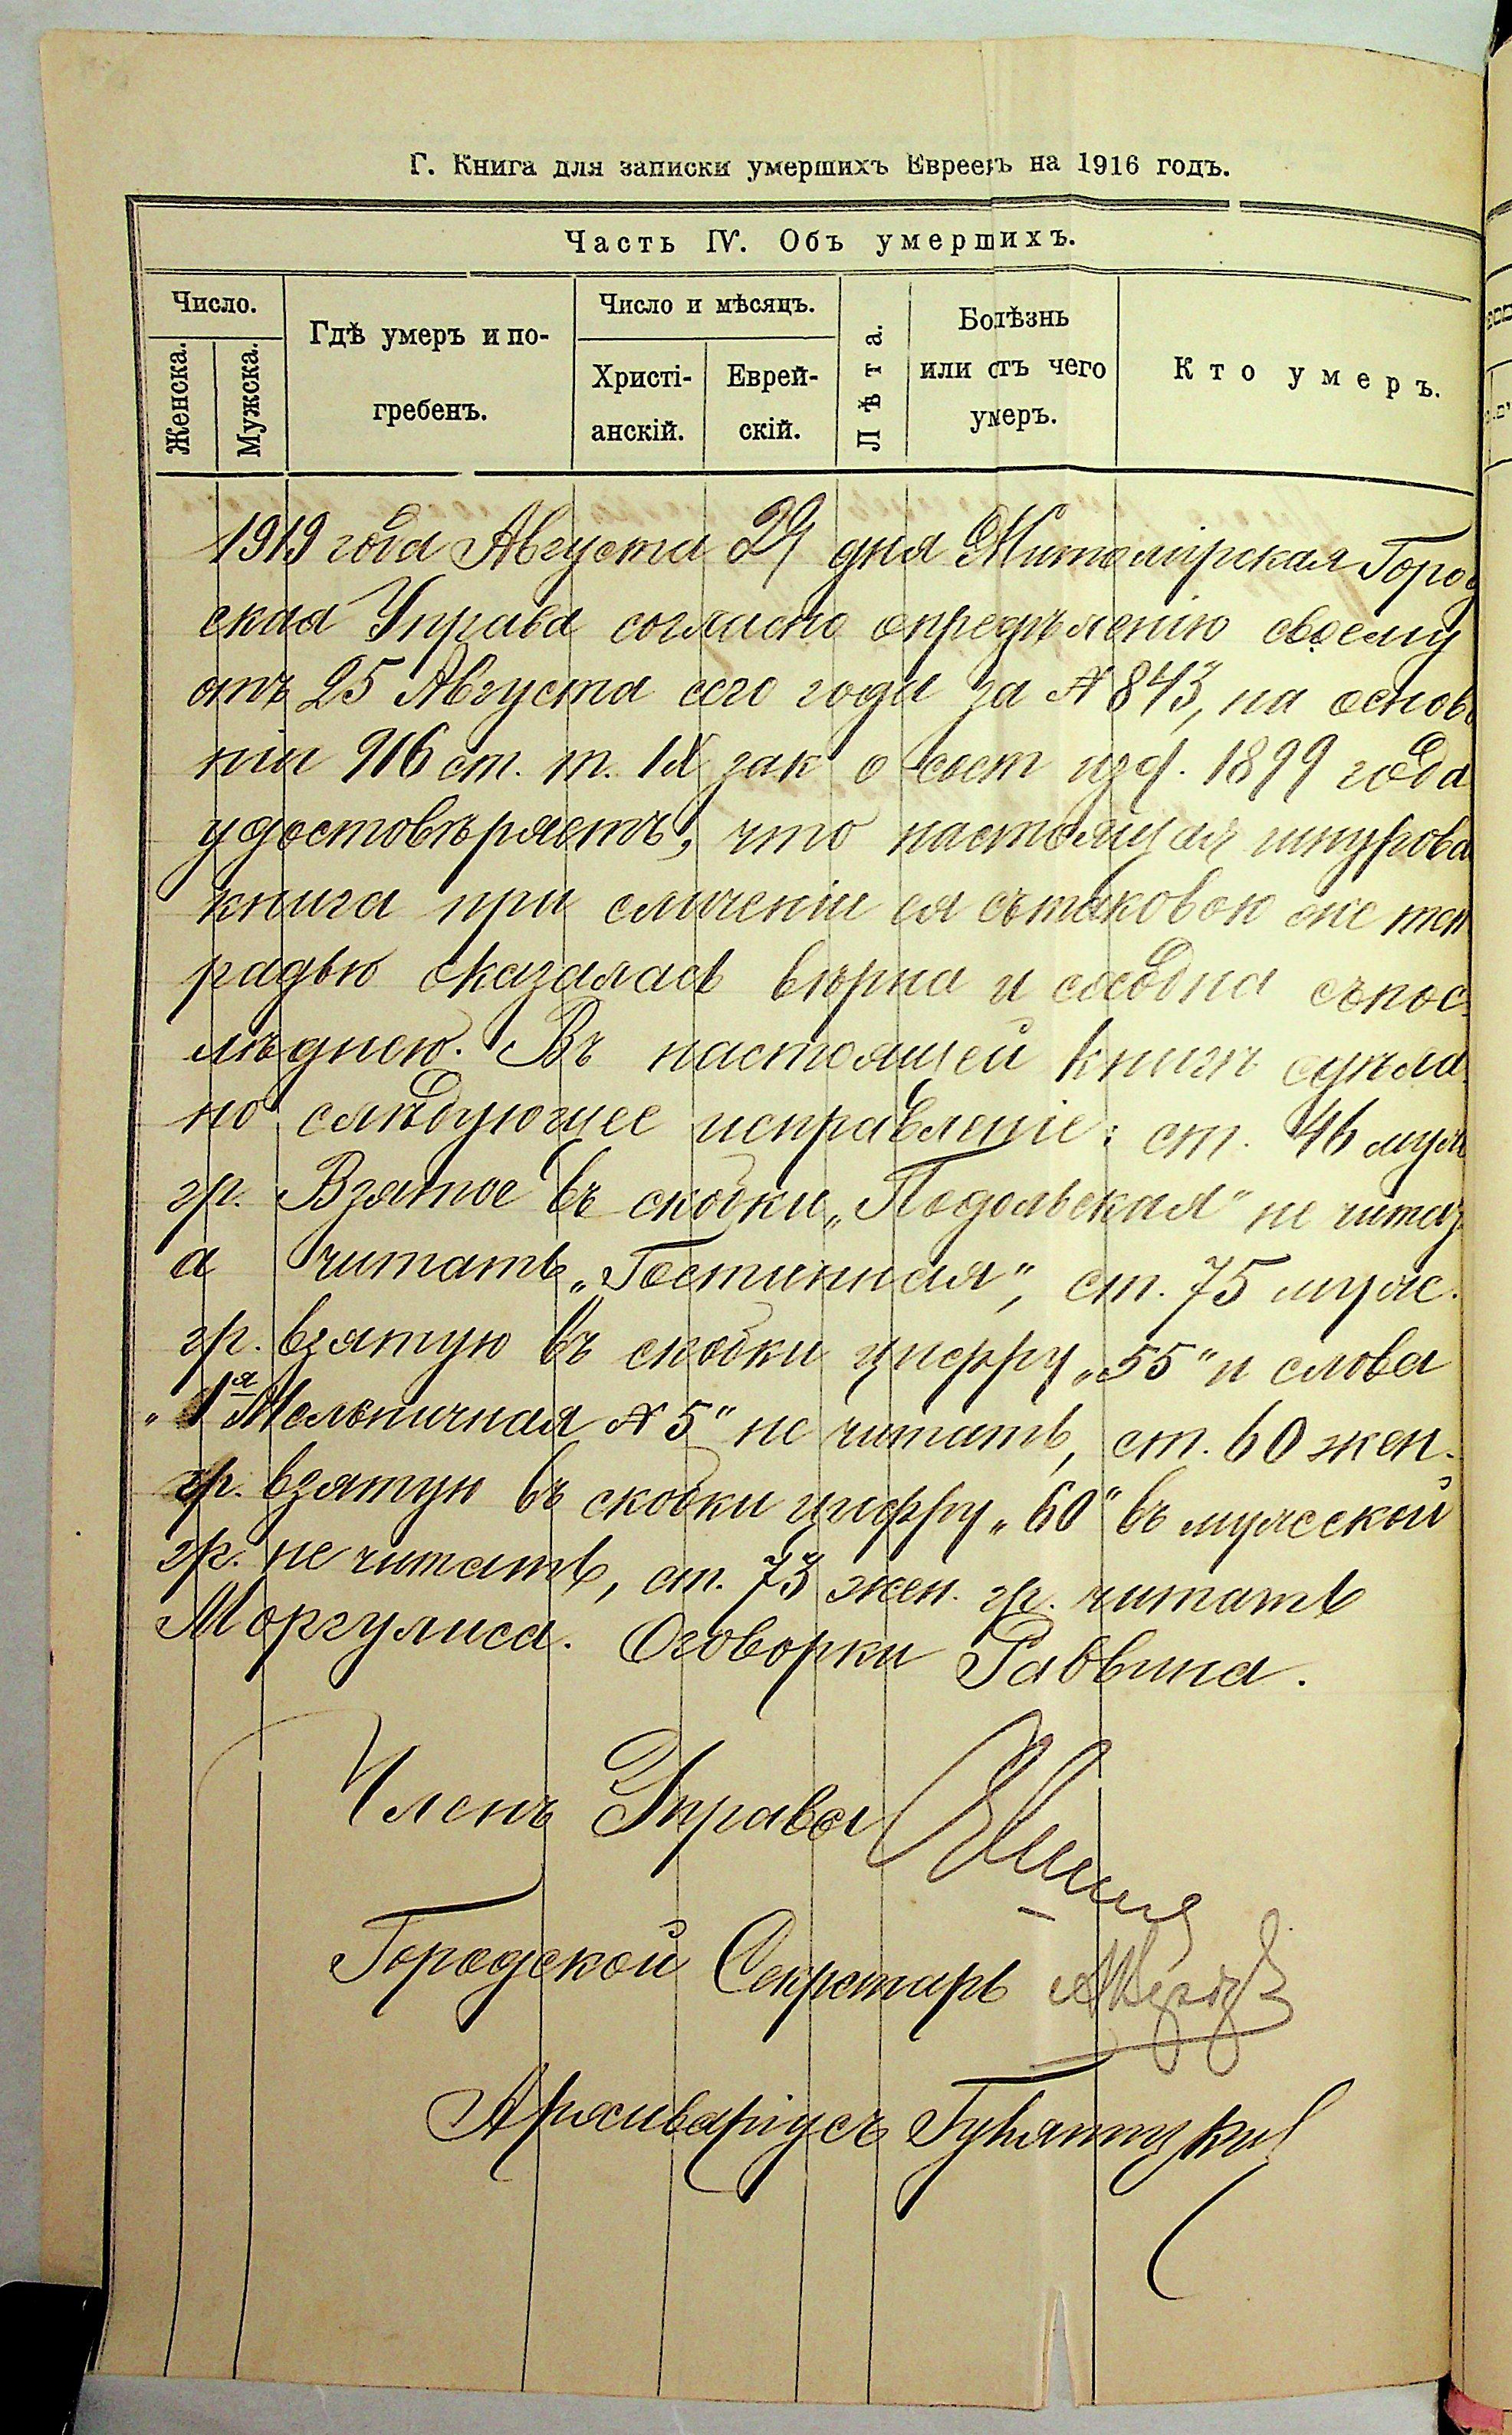 Г. Книга для записки умершихъ Евреевъ на 1916 годъ.
Часть IV. Объ умершихъ.
Число.
Женска.
Мужска.
Гдѣ умеръ и по-
гребенъ.
Число и мѣсяцъ.
Христі-
анскій.
Еврей-
скій.
Лѣта.
Болѣзнь
или отъ чего
умеръ.
Кто умеръ.
1919 года Августа 29 дня Житомірская Город
ская Управа согласно опредѣленію своему
отъ 25 Августа сего года за № 843, на основа
ніи 916 ст. т. IX зак о сост изд. 1899 года
удостовѣряетъ, что настоящая шнурова
книга при сличеніи ея съ таковою же тет
радью оказалась вѣрна и сходна съ пос
лѣднею. Въ настоящей книгѣ сдѣла
но слѣдующее исправленіе: ст. 46 муж
гр. Взятое въ скобки „Подольская" не читать
а читать „Гостинная", ст. 75 мужс.
гр. взятую въ скобки цифру „55" и слова
„1я Мельничная № 5" не читать, ст. 60 жен.
гр. взятую въ скобки цифру „60" въ мужеской
гр. не читать, ст. 73 жен. гр. читать
Моргулиса. Оговорки Раввина.
Членъ Управы
Городской Секретарь
Архиваріусъ